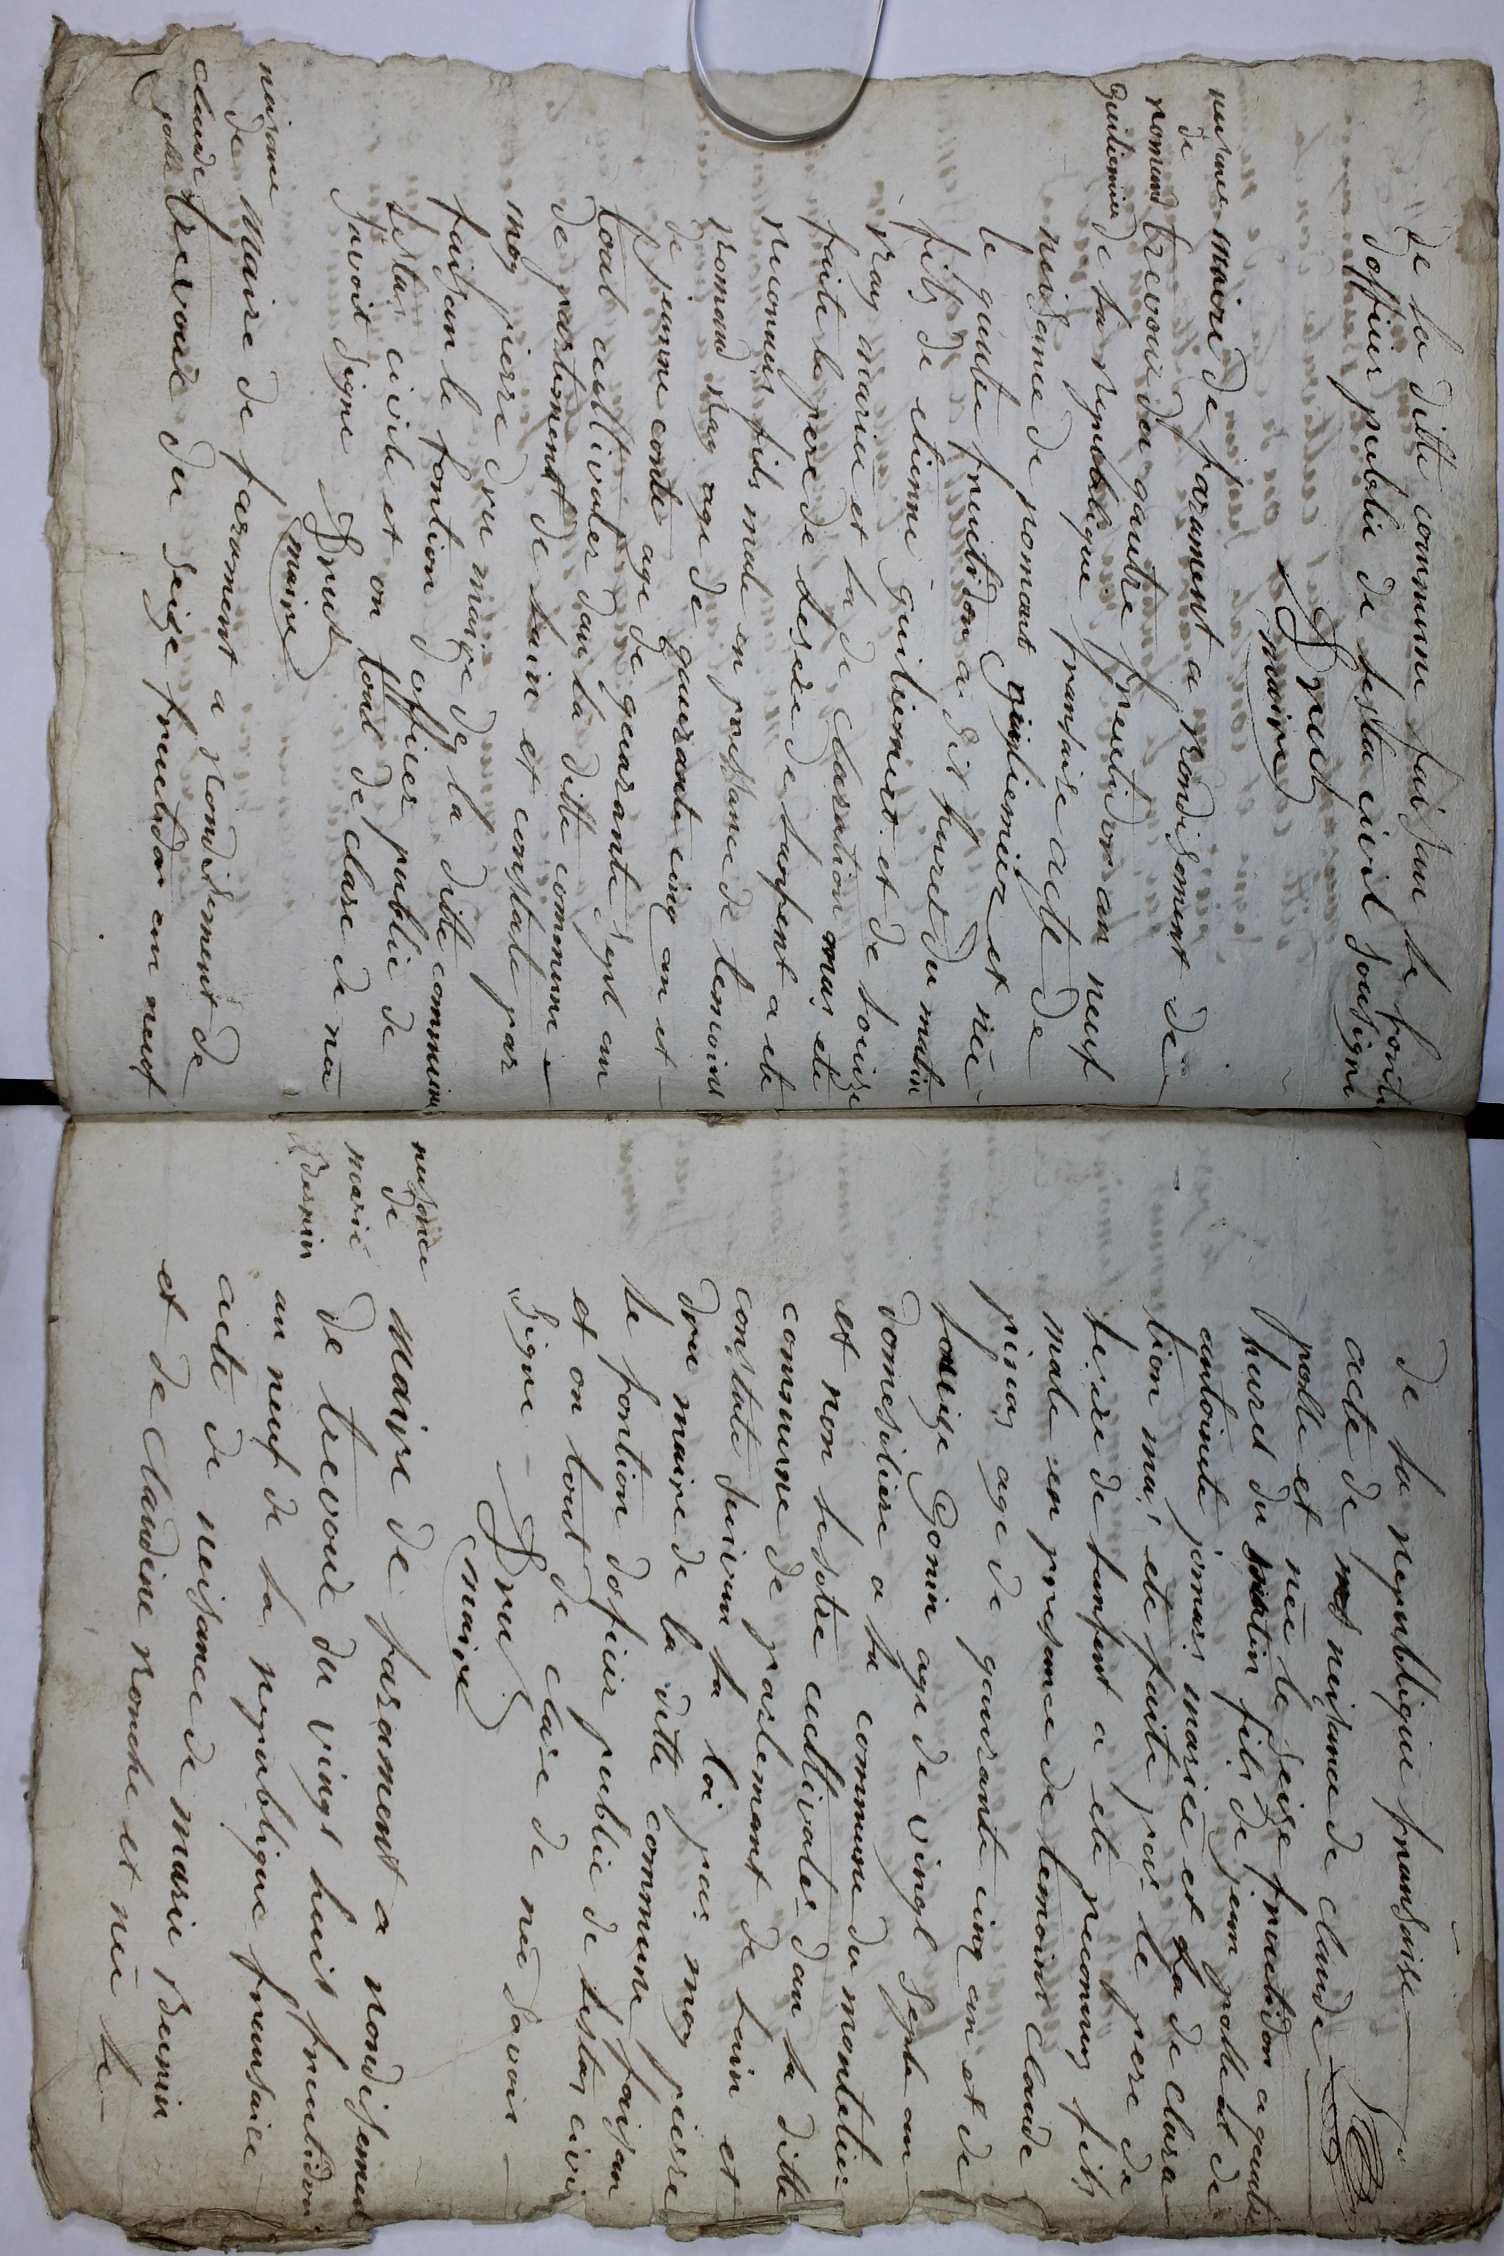 de la ditte commune faisant le fonti
dofficier publie de lestta civil sousigné
Druet
maire
neisance
de
romand
Guiliemier
mairie de farament a rondisoment de
trevoux du quatre fruitidor an neuf
de la republique fransaise acte de
neisance de romant guigliemier et né
le quatre fruitidor a dix hures du matin
fils de etienne guiliemier et de louise
ray mariee et la de claration mas ete
faite le pere de lesere de lanfent a ete
reconnus fils male en pressance de temoint
romand ray age de quarante cinq an et
de jemme conte age de quarante sept an
tout cultivater dan la ditte commune
de partement de lain et constate par
moy piere dru maire de la ditte commune
faisan le fontion dofficier publie de
lestas civile et on tout de clare de né
savoir signe Drut
maire
neisance
de
claude
polle
Mairie de farament a rondisement de
trevoux du seize fruitidor an neuf
de la republique fransaise
acte de neisance de claude
polle et née le seize fruitidor a quatre
hures du matin fils de jean pollet de
antoinete jomar mariée et la de clara
tion ma ete faite par le pere de
lesere de lanfant a ete reconnus fils
male en pressance de temoint claude
piras age de quarante cinq an et de
louise Gonin age de vingt septe an
domesitiere a la commune du montelier
et non lesotre cultivater dan la ditte
commune de partemant de lain et
constate suivan la loi par moy piere
dru maire de la ditte commune faisan
le fontion dofficier publie de lestas civi
et on tout de clare de née savoir
signe Dru
maire
neisance
de
marie
Bernin
Mairie de farament a rondisement
de trevoux du vingt huit fruitidor
an neuf de la republique fransaise
acte de neisance de marie Bernin
et de claudine ronche et née le